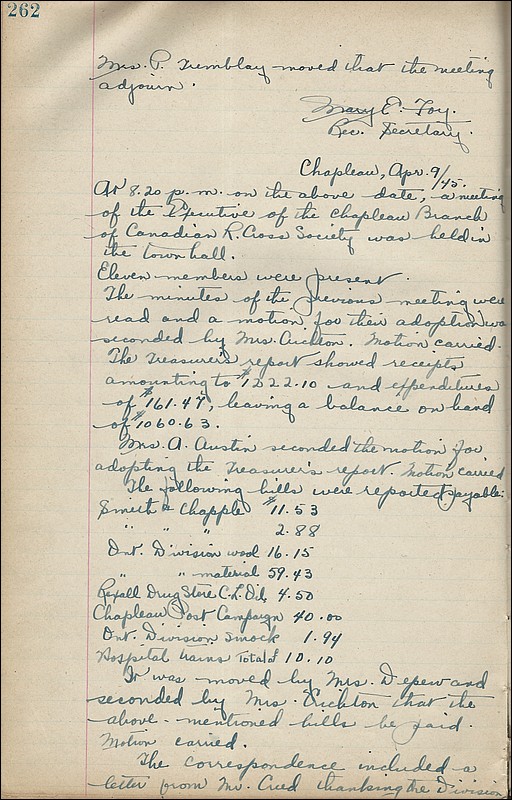 262
Mrs. P. Tremblay moved that the meeting
adjourn.
Mary E. Foy.
Rec. Secretary.
Chapleau, Apr. 9/45.
At 8.20 p.m. on the above date, a meeting
of the Executive of the Chapleau Branch
of Canadian R. Cross Society was held in
the town hall.
Eleven members were present.
The minutes of the previous meeting were
read and a motion for their adoption was
seconded by Mrs. Crichton. Motion carried.
The Treasurer's report showed receipts
amounting to $1222.10 and expenditures
of $161.47, leaving a balance on hand
of $1060.63.
Mrs. A. Austin seconded the motion for
adopting the Treasurer's report. Motion carried
The following bills were reported payable:
Smith & Chapple $11.53
" " " 2.88
Ont. Division wool 16.15
" " material 59.43
Rexall Drug Store C.L. Oil 4.50
Chapleau Post Campaign 40.00
Ont. Division smock 1.94
Hospital trains Total of 10.10
It was moved by Mrs. Depew and
seconded by Mrs. Crichton that the
above-mentioned bills be paid.
Motion carried.
The correspondence included a
letter from Mr. thanking the Division